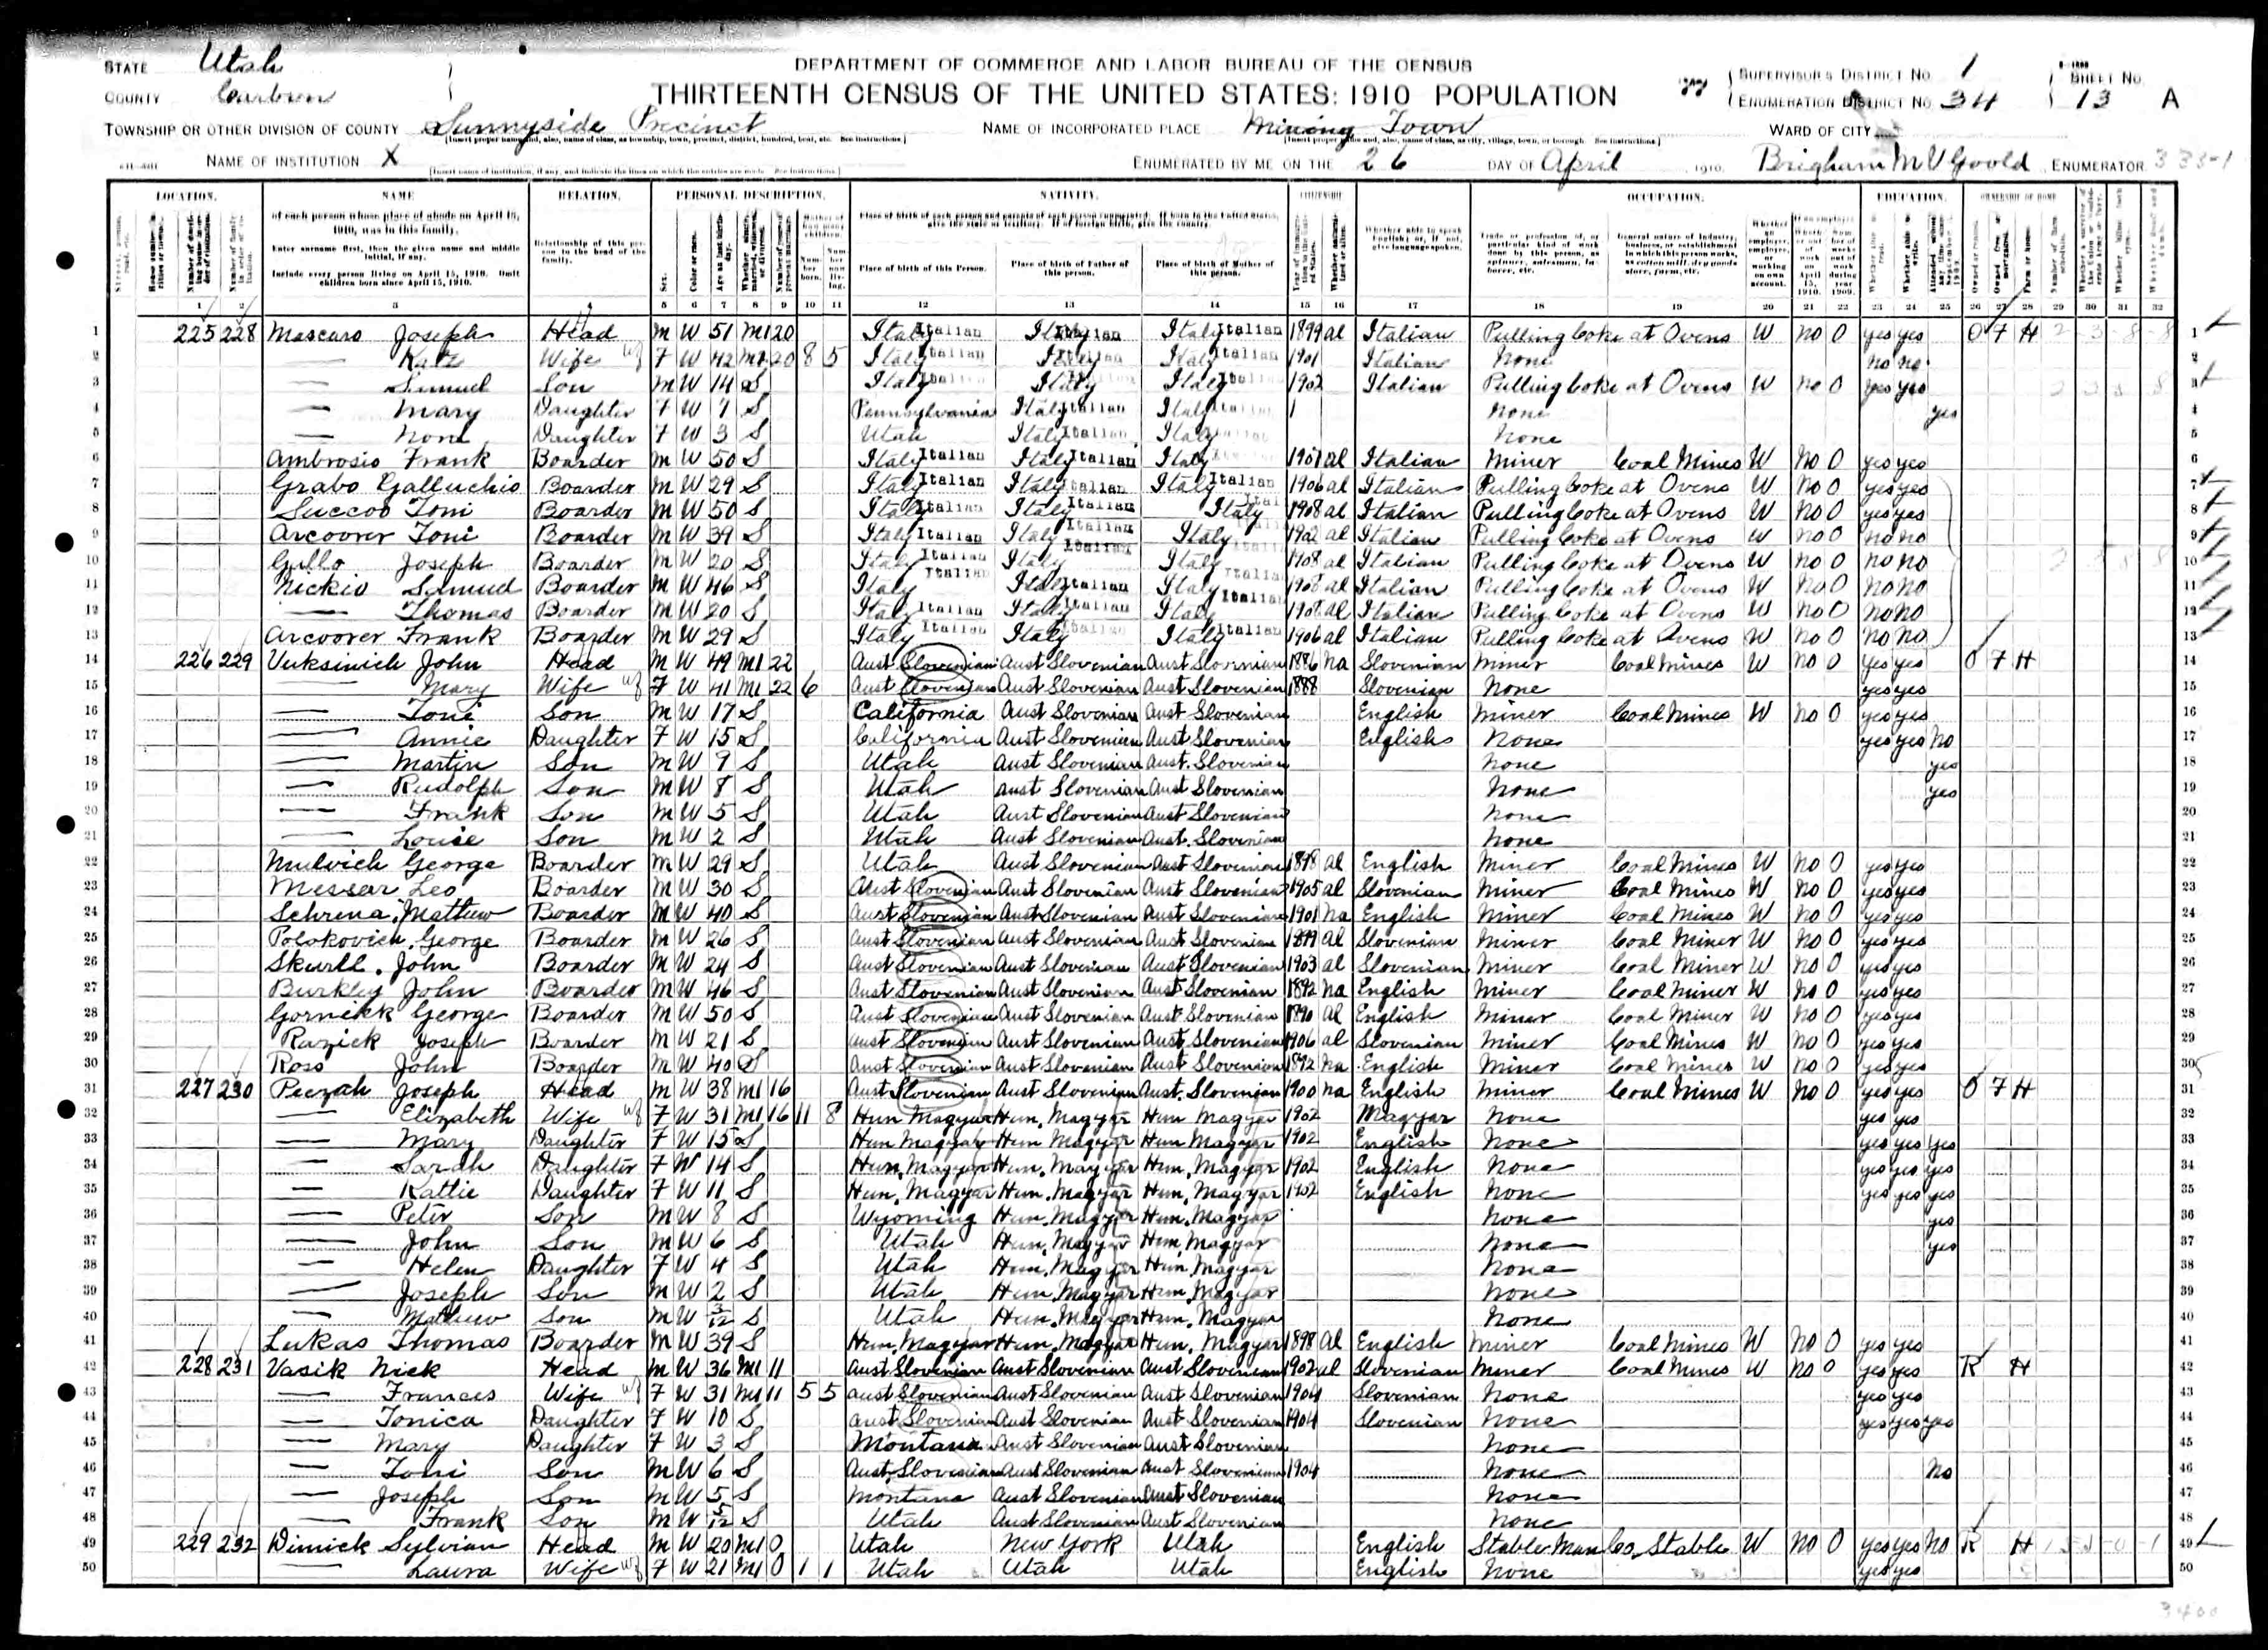 STATE Utah
DEPARTMENT OF COMMERCE AND LABOR BUREAU OF THE CENSUS
COUNTY Carbon
THIRTEENTH CENSUS OF THE UNITED STATES: 1910 POPULATION
SUPERVISOR'S DISTRICT No. 1
ENUMERATION DISTRICT No. 34
SHEET No. 13 A
TOWNSHIP OR OTHER DIVISION OF COUNTY Sunnyside Precinct
NAME OF INCORPORATED PLACE Mining Town
WARD OF CITY
NAME OF INSTITUTION X
ENUMERATED BY ME ON THE 26 DAY OF April, 1910. Brigham M Goold, ENUMERATOR
LOCATION. NAME RELATION. PERSONAL DESCRIPTION. NATIVITY. CITIZENSHIP OCCUPATION. EDUCATION. OWNERSHIP OF HOME
of each person whose place of abode on April 15, 1910, was in this family.
Enter surname first, then the given name and middle initial, if any.
Include every person living on April 15, 1910. Omit children born since April 15, 1910.
Relationship of this person to the head of the family.
Place of birth of this Person. Place of birth of Father of this person. Place of birth of Mother of this person.
1 2 3 4 5 6 7 8 9 10 11 12 13 14 15 16 17 18 19 20 21 22 23 24 25 26 27 28 29 30 31 32
1 225 228 Mascaro Joseph Head M W 51 M1 20 Italy Italian Italy Italian Italy Italian 1899 al Italian Pulling Coke at Ovens W No 0 yes yes O F H 1
2 Kate Wife F W 42 M1 20 8 5 Italy Italian Italy Italian Italy Italian 1901 Italian None No No 2
3 Samuel Son M W 14 S Italy Italy Italy 1902 Italian Pulling Coke at Ovens W No 0 yes yes 3
4 Mary Daughter F W 7 S Pennsylvania Italy Italian Italy Italian None yes 4
5 None Daughter F W 3 S Utah Italy Italian Italy Italian None 5
6 Ambrosio Frank Boarder M W 50 S Italy Italian Italy Italian Italy al Italian Miner Coal Mines W No 0 yes yes 6
7 Grabo Galluchio Boarder M W 29 S Italy Italian Italy Italian Italy Italian 1906 al Italian Pulling Coke at Ovens W No 0 yes yes 7
8 Succoo Toni Boarder M W 50 S Italy Italian Italy Italian Italy 1908 al Italian Pulling Coke at Ovens W No 0 yes yes 8
9 Arcoover Toni Boarder M W 39 S Italy Italian Italy Italian Italy 1902 al Italian Pulling Coke at Ovens W No 0 No No 9
10 Gullo Joseph Boarder M W 20 S Italy Italian Italy Italian Italy 1908 al Italian Pulling Coke at Ovens W No 0 No No 10
11 Nickio Samuel Boarder M W 46 S Italy Italian Italy Italian Italy Italian 1908 al Italian Pulling Coke at Ovens W No 0 No No 11
12 Thomas Boarder M W 20 S Italy Italian Italy Italian Italy Italian 1908 al Italian Pulling Coke at Ovens W No 0 No No 12
13 Arcoover Frank Boarder M W 29 S Italy Italian Italy Italy Italian 1906 al Italian Pulling Coke at Ovens W No 0 No No 13
14 226 229 Vuksinich John Head M W 49 M1 22 Aust Slovenian Aust Slovenian Aust Slovenian 1886 Na Slovenian Miner Coal Mines W No 0 yes yes O F H 14
15 Mary Wife F W 41 M1 22 6 Aust Slovenian Aust Slovenian Aust Slovenian 1888 Slovenian None yes yes 15
16 Toni Son M W 17 S California Aust Slovenian Aust Slovenian English Miner Coal Mines W No 0 yes yes 16
17 Annie Daughter F W 15 S California Aust Slovenian Aust Slovenian English None yes yes No 17
18 Martin Son M W 9 S Utah Aust Slovenian Aust. Slovenian None yes 18
19 Rudolph Son M W 8 S Utah Aust Slovenian Aust Slovenian None yes 19
20 Frank Son M W 5 S Utah Aust Slovenian Aust Slovenian None 20
21 Louise Son M W 2 S Utah Aust Slovenian Aust. Slovenian None 21
22 Mulvich George Boarder M W 29 S Utah Aust Slovenian Aust Slovenian 1898 al English Miner Coal Mines W No 0 yes yes 22
23 Messar Leo Boarder M W 30 S Aust Slovenian Aust Slovenian Aust Slovenian 1905 al Slovenian Miner Coal Mines W No 0 yes yes 23
24 Schrena, Mathew Boarder M W 40 S Aust Slovenian Aust Slovenian Aust Slovenian 1901 Na English Miner Coal Mines W No 0 yes yes 24
25 Polokovich, George Boarder M W 26 S Aust Slovenian Aust Slovenian Aust Slovenian 1899 al Slovenian Miner Coal Miner W No 0 yes yes 25
26 Skurll, John Boarder M W 24 S Aust Slovenian Aust Slovenian Aust Slovenian 1903 al Slovenian Miner Coal Miner W No 0 yes yes 26
27 Burkley John Boarder M W 46 S Aust Slovenian Aust Slovenian Aust Slovenian 1892 Na English Miner Coal Miner W No 0 yes yes 27
28 Gornekk George Boarder M W 50 S Aust Slovenian Aust Slovenian Aust Slovenian 1890 al English Miner Coal Miner W No 0 yes yes 28
29 Razick Joseph Boarder M W 21 S Aust Slovenian Aust Slovenian Aust Slovenian 1906 al Slovenian Miner Coal Mines W No 0 yes yes 29
30 Ross John Boarder M W 40 S Aust Slovenian Aust Slovenian Aust Slovenian 1892 Na English Miner Coal Mines W No 0 yes yes 30
31 227 230 Peczah Joseph Head M W 38 M1 16 Aust Slovenian Aust Slovenian Aust. Slovenian 1900 Na English Miner Coal Mines W No 0 yes yes O F H 31
32 Elizabeth Wife F W 31 M1 16 11 8 Hun Magyar Hun. Magyar Hun Magyar 1902 Magyar None yes yes 32
33 Mary Daughter F W 15 S Hun Magyar Hun Magyar Hun Magyar 1902 English None yes yes yes 33
34 Sarah Daughter F W 14 S Hun. Magyar Hun. Magyar Hun. Magyar 1902 English None yes yes yes 34
35 Kattie Daughter F W 11 S Hun. Magyar Hun. Magyar Hun. Magyar 1902 English None yes yes yes 35
36 Peter Son M W 8 S Wyoming Hun. Magyar Hun. Magyar None yes 36
37 John Son M W 6 S Utah Hun. Magyar Hun. Magyar None yes 37
38 Helen Daughter F W 4 S Utah Hun. Magyar Hun. Magyar None 38
39 Joseph Son M W 2 S Utah Hun. Magyar Hun. Magyar None 39
40 Mathew Son M W 3/12 S Utah Hun. Magyar Hun. Magyar None 40
41 Lukas Thomas Boarder M W 39 S Hun. Magyar Hun. Magyar Hun. Magyar 1898 al English Miner Coal Mines W No 0 yes yes 41
42 228 231 Vasik Nick Head M W 36 M1 11 Aust Slovenian Aust Slovenian Aust Slovenian 1902 al Slovenian Miner Coal Mines W No 0 yes yes R H 42
43 Frances Wife F W 31 M1 11 5 5 Aust Slovenian Aust Slovenian Aust Slovenian 1904 Slovenian None yes yes 43
44 Tonica Daughter F W 10 S Aust Slovenian Aust Slovenian Aust Slovenian 1904 Slovenian None yes yes yes 44
45 Mary Daughter F W 3 S Montana Aust Slovenian Aust Slovenian None 45
46 Toni Son M W 6 S Aust. Slovenian Aust Slovenian Aust Slovenian 1904 None No 46
47 Joseph Son M W 5 S Montana Aust Slovenian Aust Slovenian None 47
48 Frank Son M W 5/12 S Utah Aust Slovenian Aust Slovenian None 48
49 229 232 Dimick Sylvian Head M W 20 M1 0 Utah New York Utah English Stable Man Co. Stable W No 0 yes yes No R H 49
50 Laura Wife F W 21 M1 0 1 1 Utah Utah Utah English None yes yes 50